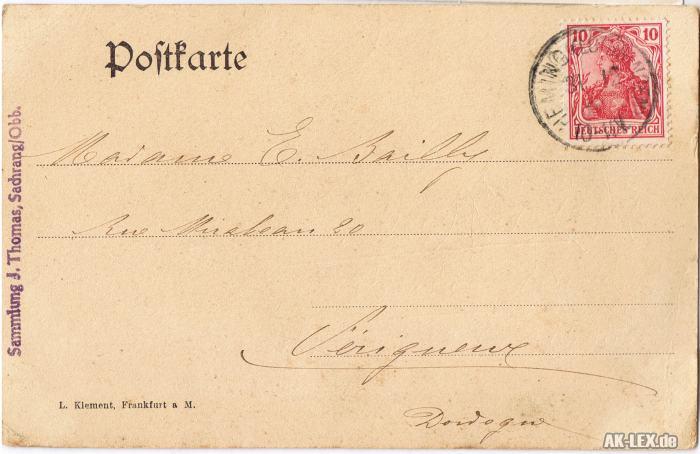 Postkarte
10 10
DEUTSCHES REICH
Madame E. Bailly
Rue Mirabeau 20
Périgueux
Dordogne
L. Klement, Frankfurt a M.
Sammlung J. Thomas, Sachrang/Obb.
AK-LEX.de